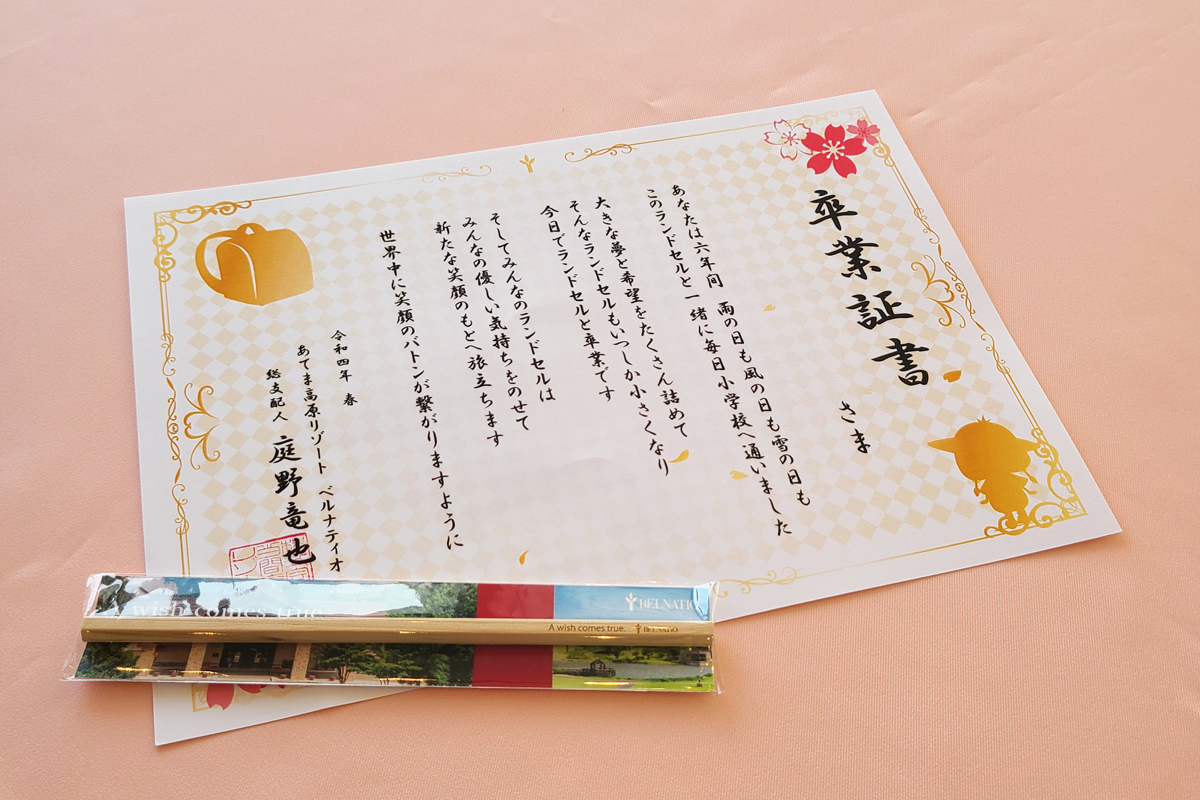 卒業証書
さま
あなたは六年間 雨の日も風の日も雪の日も
このランドセルと一緒に毎日小学校へ通いました
大きな夢と希望をたくさん詰めて
そんなランドセルもいつしか小さくなり
今日でランドセルと卒業です
そしてみんなのランドセルは
みんなの優しい気持ちをのせて
新たな笑顔のもとへ旅立ちます
世界中に笑顔のバトンが繋がりますように
令和四年 春
あてま高原リゾート ベルナティオ
総支配人 庭野竜也
wish comes true
BELNATIO
A wish comes true. BELNATIO